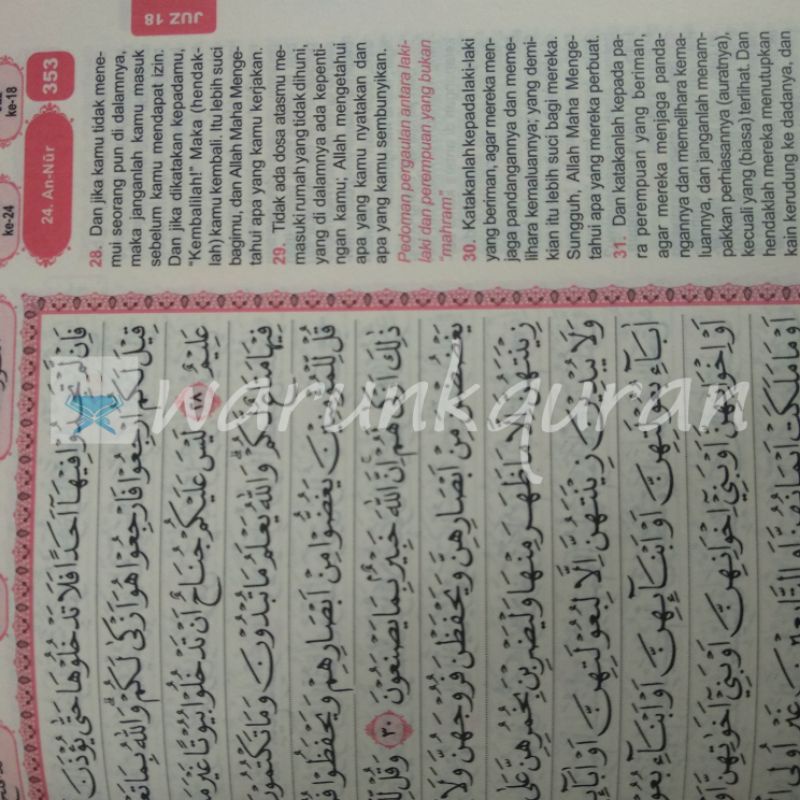 JUZ 18
353
24. An-Nūr
ke-18
ke-24
28. Dan jika kamu tidak mene-
mui seorang pun di dalamnya,
maka janganlah kamu masuk
sebelum kamu mendapat izin.
Dan jika dikatakan kepadamu,
"Kembalilah!" Maka (hendak-
lah) kamu kembali. Itu lebih suci
bagimu, dan Allah Maha Menge-
tahui apa yang kamu kerjakan.
29. Tidak ada dosa atasmu me-
masuki rumah yang tidak dihuni,
yang di dalamnya ada kepenti-
ngan kamu; Allah mengetahui
apa yang kamu nyatakan dan
apa yang kamu sembunyikan.
Pedoman pergaulan antara laki-
laki dan perempuan yang bukan
"mahram"
30. Katakanlah kepada laki-laki
yang beriman, agar mereka men-
jaga pandangannya dan meme-
lihara kemaluannya; yang demi-
kian itu lebih suci bagi mereka.
Sungguh, Allah Maha Menge-
tahui apa yang mereka perbuat.
31. Dan katakanlah kepada pa-
ra perempuan yang beriman,
agar mereka menjaga panda-
ngannya dan memelihara kema-
luannya, dan janganlah menam-
pakkan perhiasannya (auratnya),
kecuali yang (biasa) terlihat. Dan
hendaklah mereka menutupkan
kain kerudung ke dadanya, dan
فَاِنْ لَّمْ تَجِدُوْا فِيْهَآ اَحَدًا فَلَا تَدْخُلُوْهَا حَتّٰى يُؤْذَنَ
قِيْلَ لَكُمُ ارْجِعُوْا فَارْجِعُوْا هُوَ اَزْكٰى لَكُمْ ۗ وَاللّٰهُ بِمَا
عَلِيْمٌ ٢٨ لَيْسَ عَلَيْكُمْ جُنَاحٌ اَنْ تَدْخُلُوْا بُيُوْتًا غَيْرَ
فِيْهَا مَتَاعٌ لَّكُمْ ۗ وَاللّٰهُ يَعْلَمُ مَا تُبْدُوْنَ وَمَا تَكْتُمُوْنَ
قُلْ لِّلْمُؤْمِنِيْنَ يَغُضُّوْا مِنْ اَبْصَارِهِمْ وَيَحْفَظُوْا
ذٰلِكَ اَزْكٰى لَهُمْ ۗ اِنَّ اللّٰهَ خَبِيْرٌ بِمَا يَصْنَعُوْنَ ٣٠ وَقُلْ
يَغْضُضْنَ مِنْ اَبْصَارِهِنَّ وَيَحْفَظْنَ فُرُوْجَهُنَّ وَلَا
زِيْنَتَهُنَّ اِلَّا مَا ظَهَرَ مِنْهَا وَلْيَضْرِبْنَ بِخُمُرِهِنَّ
وَلَا يُبْدِيْنَ زِيْنَتَهُنَّ اِلَّا لِبُعُوْلَتِهِنَّ اَوْ
اٰبَاۤءِ بُعُوْلَتِهِنَّ اَوْ اَبْنَاۤىِٕهِنَّ اَوْ اَبْنَاۤءِ
اَوْ اِخْوَانِهِنَّ اَوْ بَنِيْٓ اِخْوَانِهِنَّ اَوْ بَنِيْٓ اَخَوٰتِهِنَّ
اَوْ مَا مَلَكَتْ اَيْمَانُهُنَّ اَوِ التَّابِعِيْنَ غَيْرِ
warunkquran